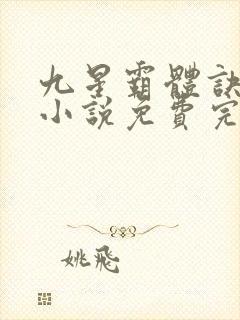 九星霸體訣
小説免費完
姚飛